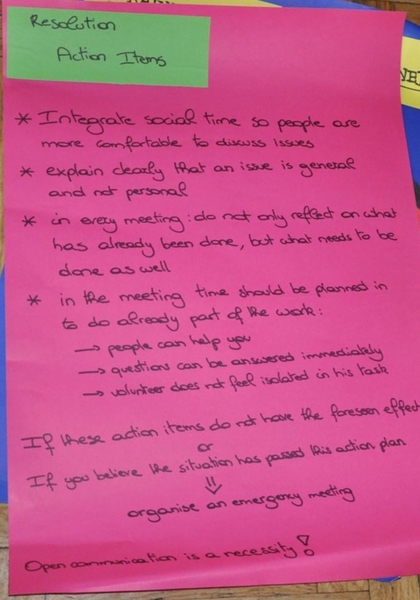 Resolution
Action Items
* Integrate social time so people are
more comfortable to discuss issues
* explain clearly that an issue is general
and not personal
* in every meeting: do not only reflect on what
has already been done, but what needs to be
done as well
* in the meeting time should be planned in
to do already part of the work:
→ people can help you
→ questions can be answered immediately
→ volunteer does not feel isolated in his task
If these action items do not have the foreseen effect
or
If you believe the situation has passed this action plan
⇓
organise an emergency meeting
Open communication is a necessity!